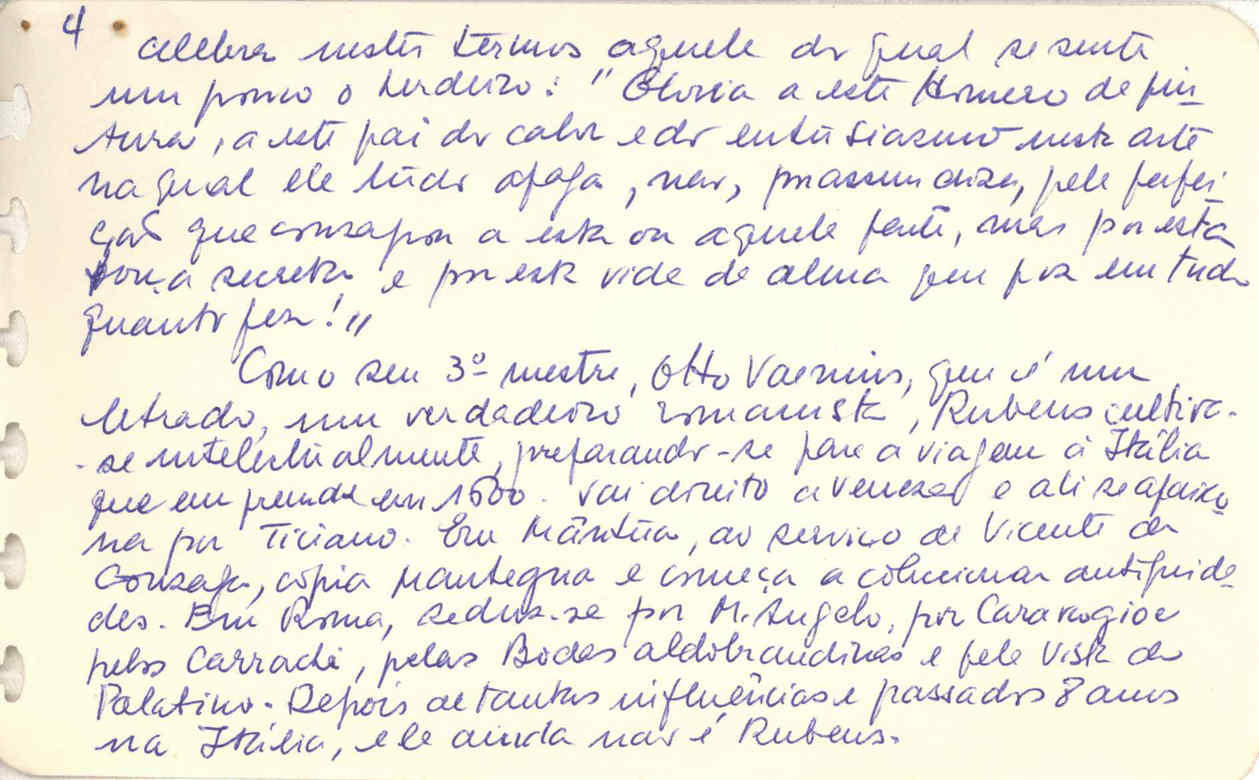 4
celebra nestes termos aquele do qual se sente
um pouco o herdeiro: "Gloria a este Homero de pin
tura, a este pai do calor e do entusiasmo nesta arte
na qual ele tudo apaga, não, por assim dizer, pela perfei
ção que consagrou a esta ou aquela parte, mas por esta
força secreta e por esta vida de alma que pôs em tudo
quanto fez!"
Como seu 3º mestre, Otto Vaenius, que é um
letrado, um verdadeiro romanista, Rubens cultiva-
-se intelectualmente, preparando-se para a viagem à Itália
que emprende em 1600. Vai direito a Veneza e ali se apaixo
na por Ticiano. Em Mântua, ao serviço de Vicente de
Gonzaga, copia Mantegna e começa a colecionar antiguida
des. Em Roma, seduz-se por M. Angelo, por Caravagio e
pelos Carrache, pelas Bodas aldobrandinas e pela Vista do
Palatino. Depois de tantas influências e passados 8 anos
na Itália, ele ainda não é Rubens.